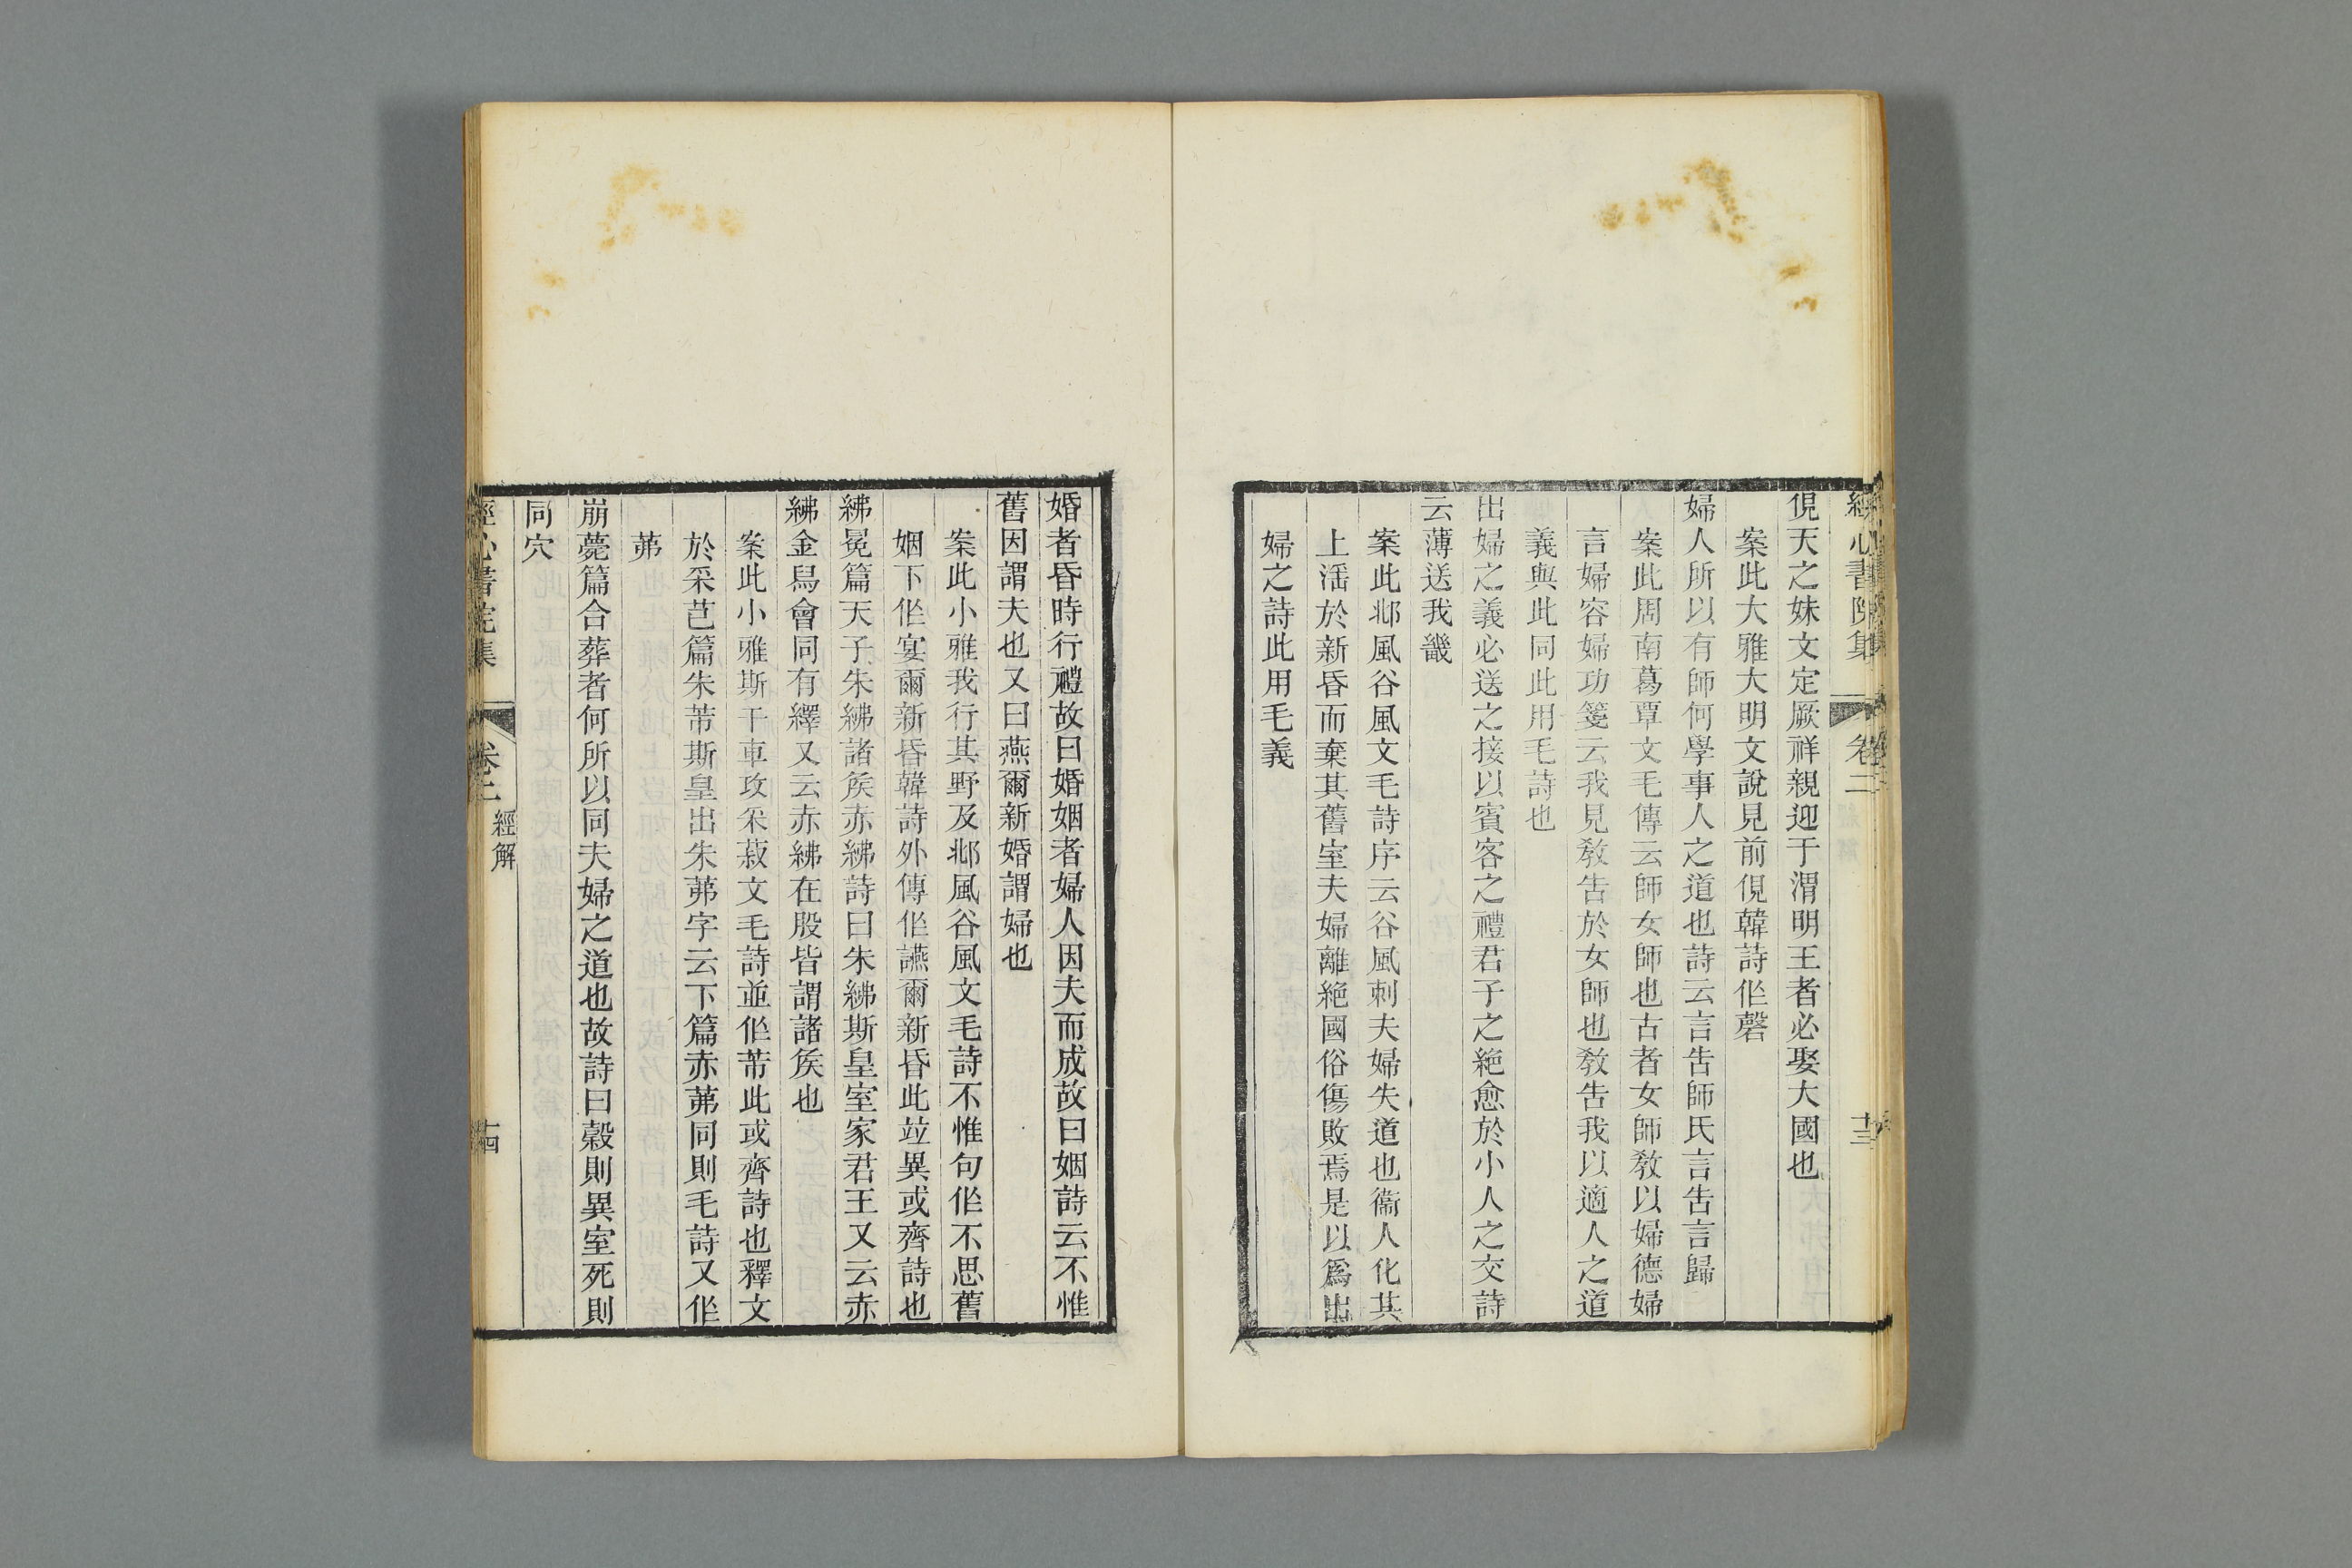 經心書院集 卷二 十三
俔天之妹文定厥祥親迎于渭明王者必娶大國也
案此大雅大明文說見前俔韓詩作磬
婦人所以有師何學事人之道也詩云言告師氏言告言歸
案此周南葛覃文毛傳云師女師也古者女師敎以婦德婦
言婦容婦功箋云我見敎告於女師也敎告我以適人之道
義與此同此用毛詩也
出婦之義必送之接以賓客之禮君子之絶愈於小人之交詩
云薄送我畿
案此邶風谷風文毛詩序云谷風刺夫婦失道也衞人化其
上滛於新昏而棄其舊室夫婦離絶國俗傷敗焉是以爲出
婦之詩此用毛義
婚者昏時行禮故曰婚姻者婦人因夫而成故曰姻詩云不惟
舊因謂夫也又曰燕爾新婚謂婦也
案此小雅我行其野及邶風谷風文毛詩不惟句作不思舊
姻下作宴爾新昏韓詩外傳作讌爾新昏此竝異或齊詩也
紼冕篇天子朱紼諸矦赤紼詩曰朱紼斯皇室家君王又云赤
紼金舄會同有繹又云赤紼在股皆謂諸矦也
案此小雅斯干車攻采菽文毛詩並作芾此或齊詩也釋文
於采芑篇朱芾斯皇出朱茀字云下篇赤茀同則毛詩又作
茀
崩薨篇合葬者何所以同夫婦之道也故詩曰榖則異室死則
同穴
經心書院集 卷二 經解 十四